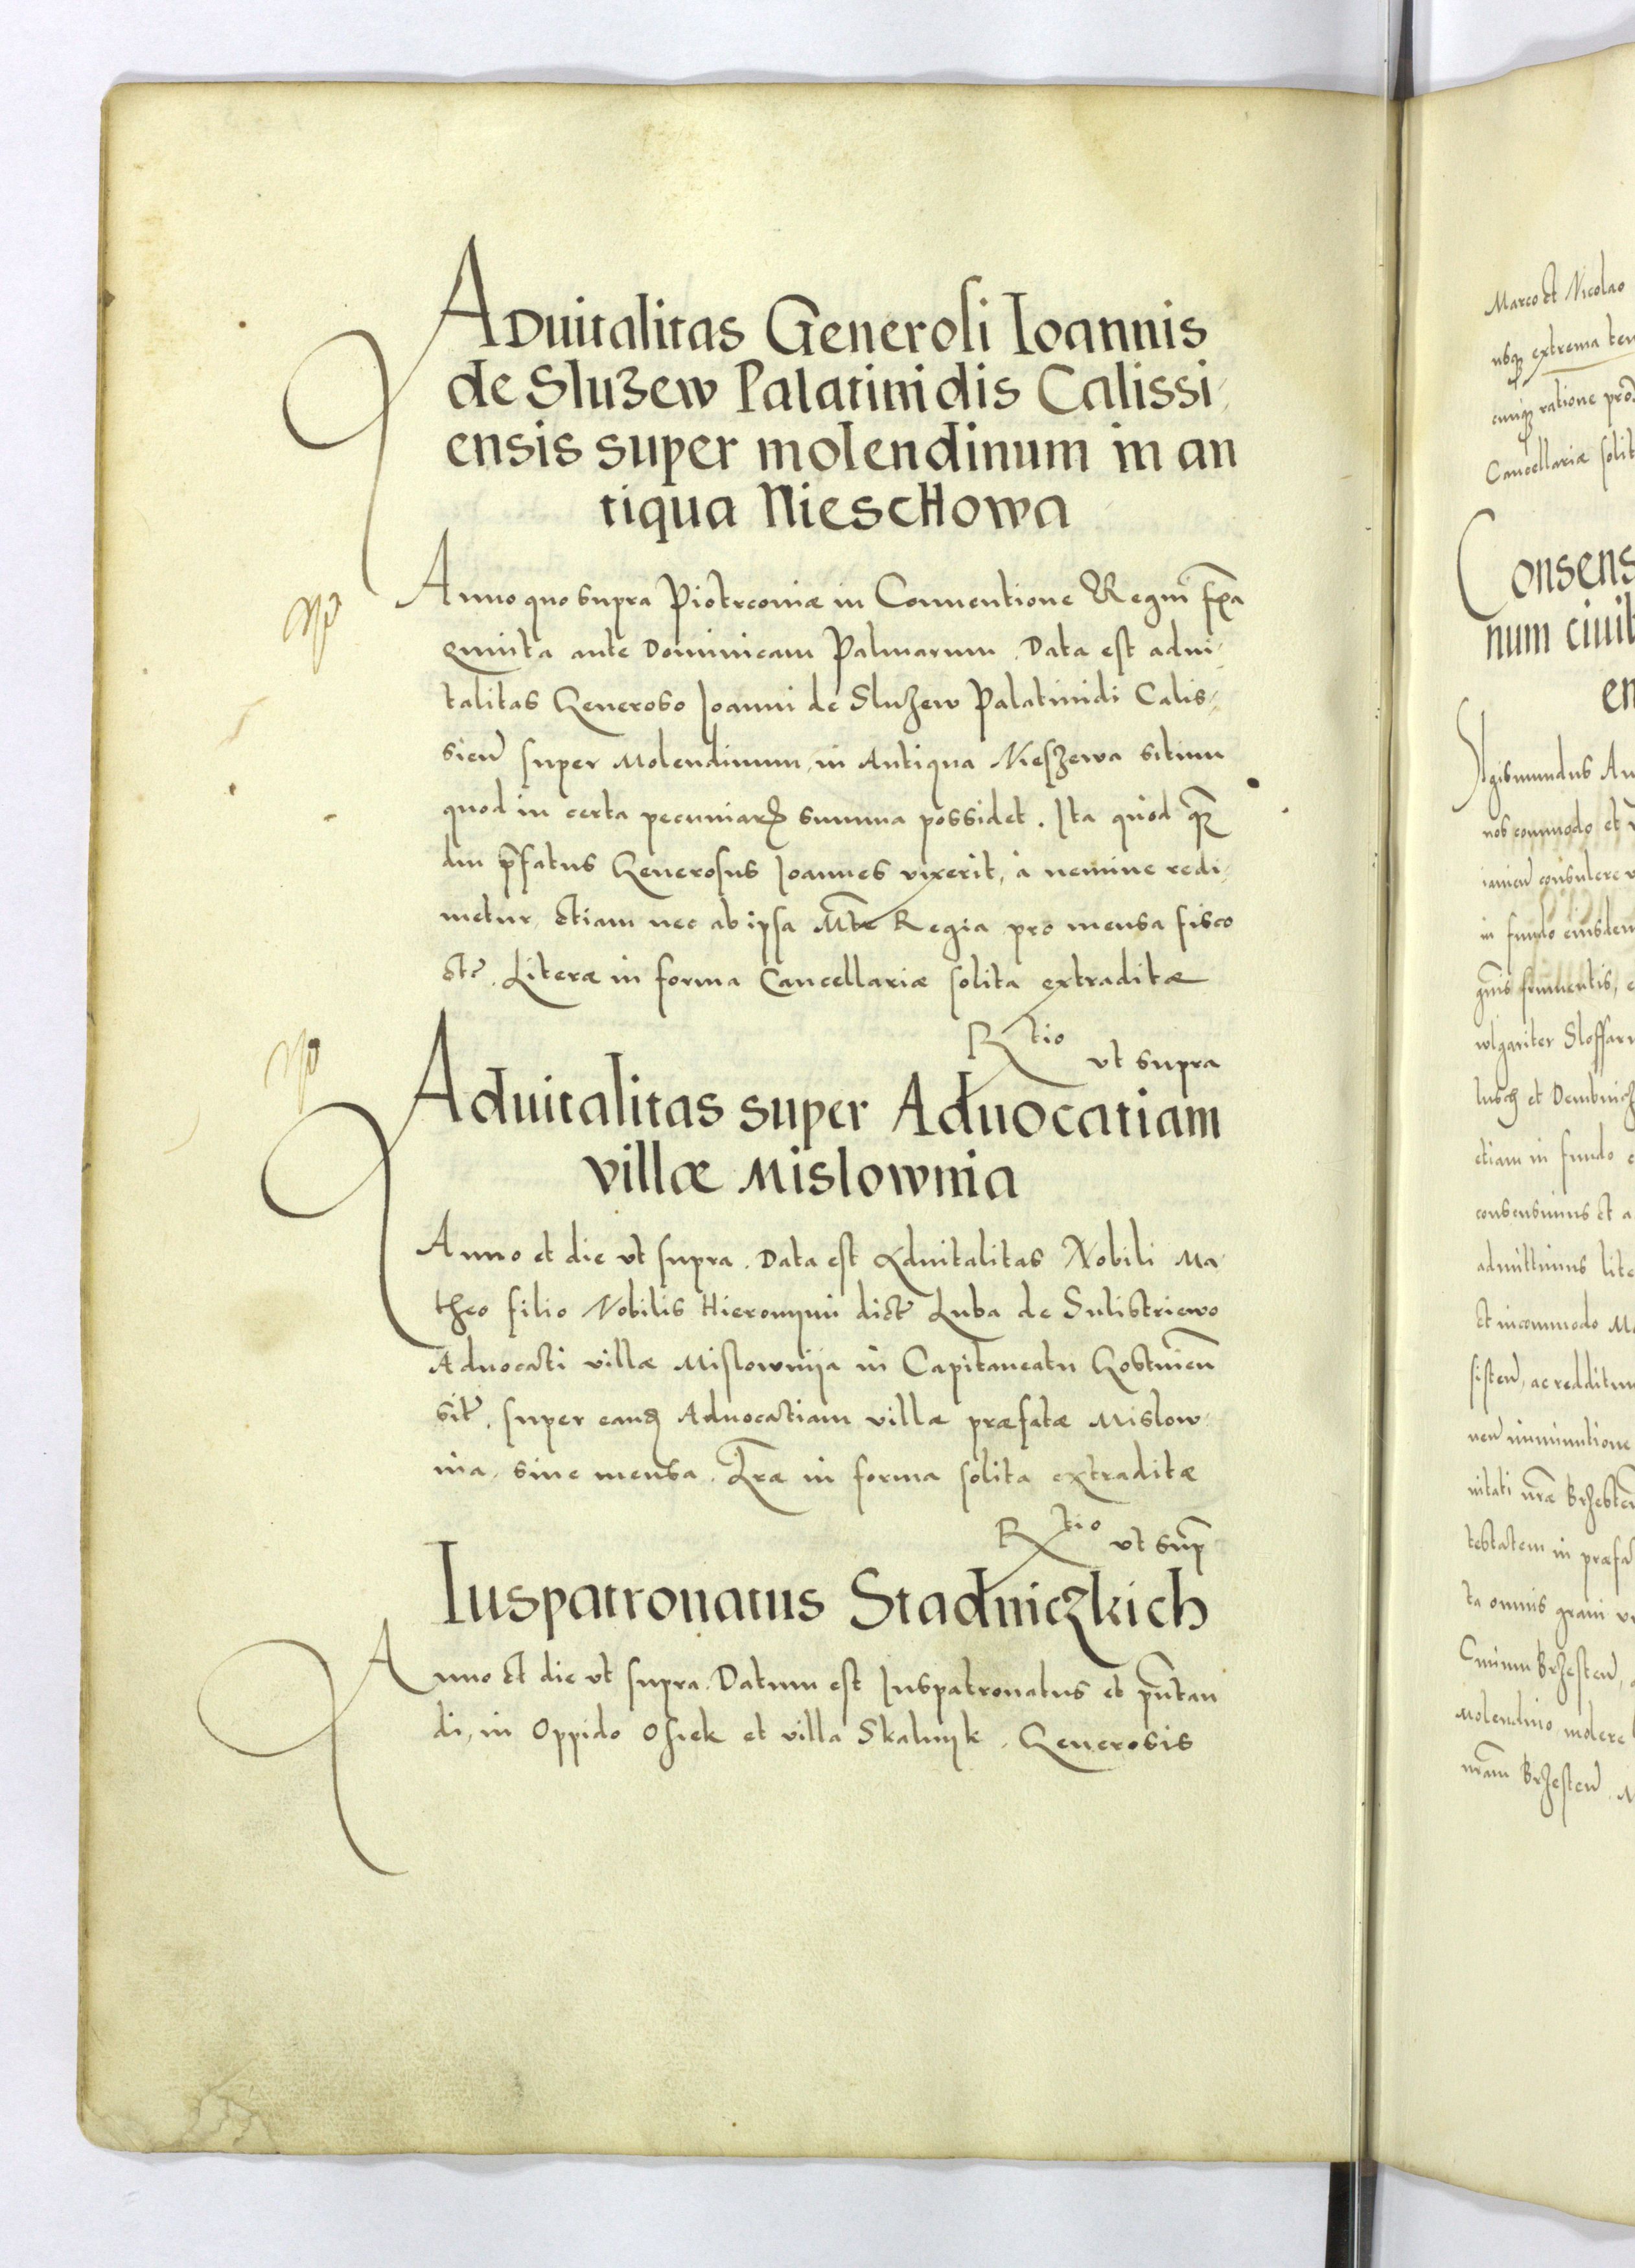 Aduitalitas Generosi Ioannis
de Sluzew Palatinidis Calissi,
ensis super molendinum in an
tiqua Nieschowa
Anno quo supra Piotrcoviæ in Conventione Regni f̄xa
quinta ante Dominicam Palmarum. Data est advi,
talitas Generoso Joanni de Sluzew Palatinidi Calis,
sieñ super Molendinum, in Antiqua Nieszewa situm
quod in certa pecuniarꝝ summa possidet. Ita quod
diu p̄fatus Generosus Joannes vixerit, à nemine redi,
metur, etiam nec ab ipsa Mte Regia pro mensa fisco
etc̃. Literæ in forma Cancellariæ solita extraditæ
Rtio ut supra
Aduitalitas super Aduocatiam
villæ Mislownia
Anno et die ut supra. Data est Aduitalitas Nobili Ma,
theo filio Nobilis Hieronymi dict̃ Luba de Sulistriewo
Aduocati villæ Mislownija in Capitaneatu Gostineñ
sit̃. super eandꝫ Aduocatiam villæ præfatæ Mislow,
nia, sine mensa. Lr̃æ in forma solita extraditæ
Rtio ut sup̃
Iuspatronatus Stadniczkich
Anno et die ut supra. Datum est Iuspatronatus et p̃ntan
di, in Oppido Osiek et villa Skalnyk. Generosis
Marco et Nicolao
ratione
Cancellariæ solit
Consens
num ciuil
en
Sigismundus Au
nos commodo et
consulere
in fundo eiusdem
et
etiam in fundo
consensimus et a
admittimus lite
et incommodo Ma
sisteñ, ac redditu
testatem in præfa
ta omnis grani
Molendino molere